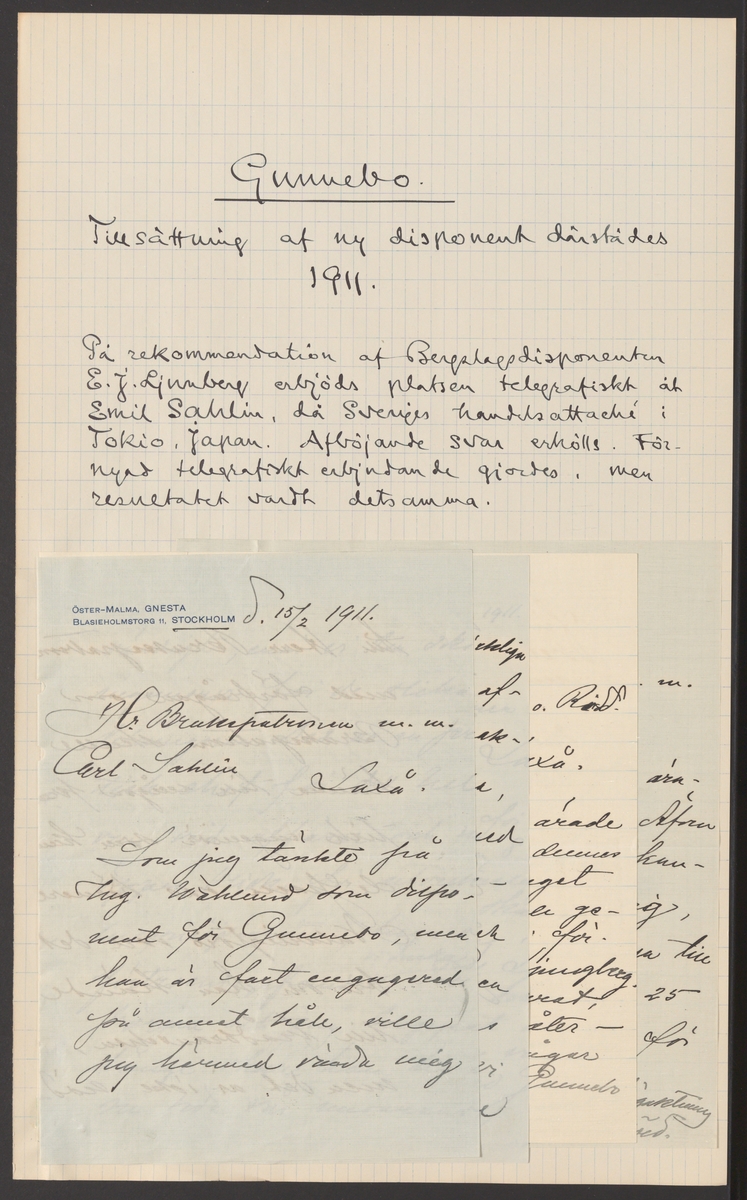 Gunnebo.
Tillsättning af ny disponent därstädes
1911.
På rekommendation af Bergslagsdisponenten
E. J. Ljunberg erbjöds platsen telegrafiskt åt
Emil Sahlin, då Sveriges handelsattaché i
Tokio, Japan. Afböjande svar erhölls. För-
nyad telegrafiskt erbjudande gjordes, men
resultatet vardt detsamma.
ÖSTER-MALMA, GNESTA
BLASIEHOLMSTORG 11, STOCKHOLM d. 15/2 1911.
Hr Brukspatronen m. m.
Carl Sahlin
Laxå.
Som jag tänkte på
Ing. Wahlund som dispo-
nent för Gunnebo, men
han är fast engagerad
på annat håll, ville
jag härmed vända mig
af-
o. Ridd.
xå.
årade
dennes
get
er ge-
för-
jungberg
åter-
ågar
Gunnebo
m.
ära-
Åfven
kun-
ig,
na till
25
för